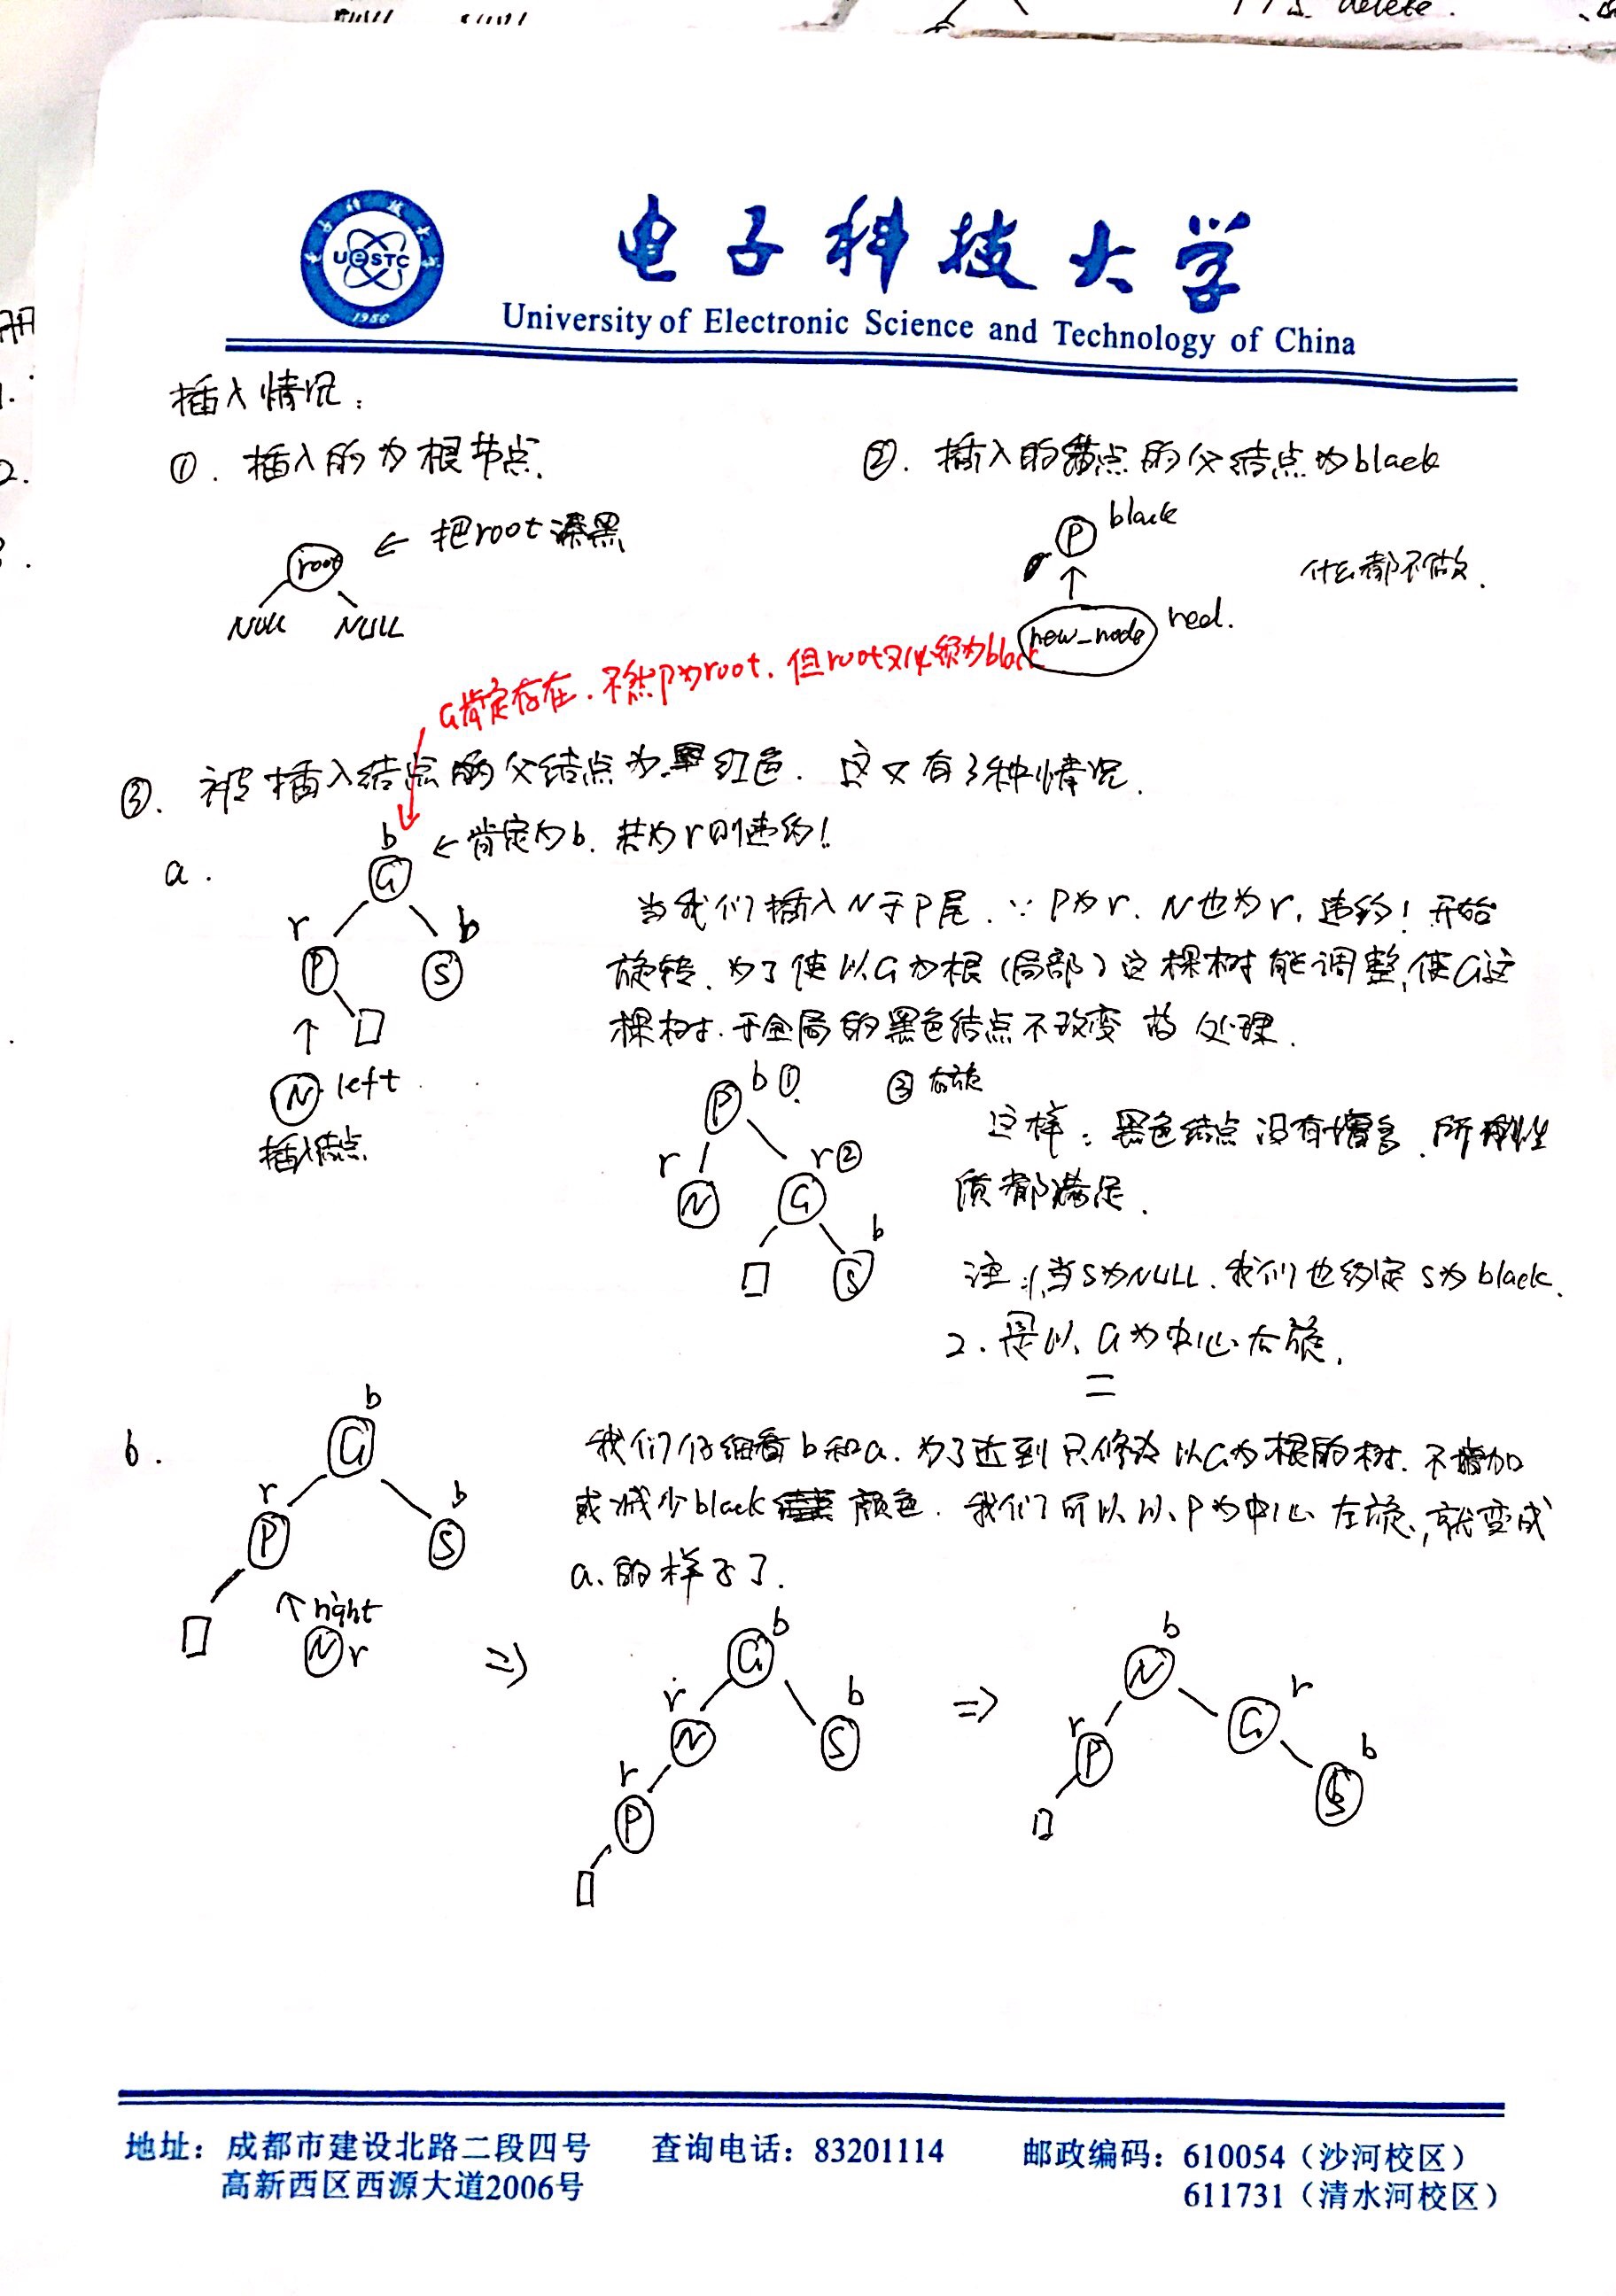 delete.
UESTC
1956
电子科技大学
University of Electronic Science and Technology of China
插入情况：
①. 插入的为根节点.
②. 插入的 点的父结点为black
← 把root漆黑
root
NULL NULL
P black
new_node red.
什么都不做.
G肯定存在. 不然P为root. 但root又必须为black
③. 被插入结点的父结点为 红色. 这又有3种情况.
a.
b
G
←肯定为b. 若为r则违约!
r b
P S
N left
插入结点
当我们插入N于P尾. ∵P为r. N也为r, 违约! 开始
旋转. 为了使以G为根(局部)这棵树能调整,使G这
棵树.于全局的黑色结点不改变的处理.
P b ①.
③ 右旋
r r②
N G
b
S
这样: 黑色结点没有增多.所有性
质都满足.
注:1.当S为NULL.我们也约定S为black.
2.是以G为中心右旋.
b.
b
G
r b
P S
↑right
N r
我们仔细看b和a.为了达到只修改以G为根的树.不增加
或减少black 颜色. 我们可以以P为中心左旋,就变成
a.的样子了.
⇒
b
G
r b
N S
r
P
⇒
b
N
r r
P G
b
S
地址：成都市建设北路二段四号 查询电话：83201114 邮政编码：610054（沙河校区）
高新西区西源大道2006号 611731（清水河校区）